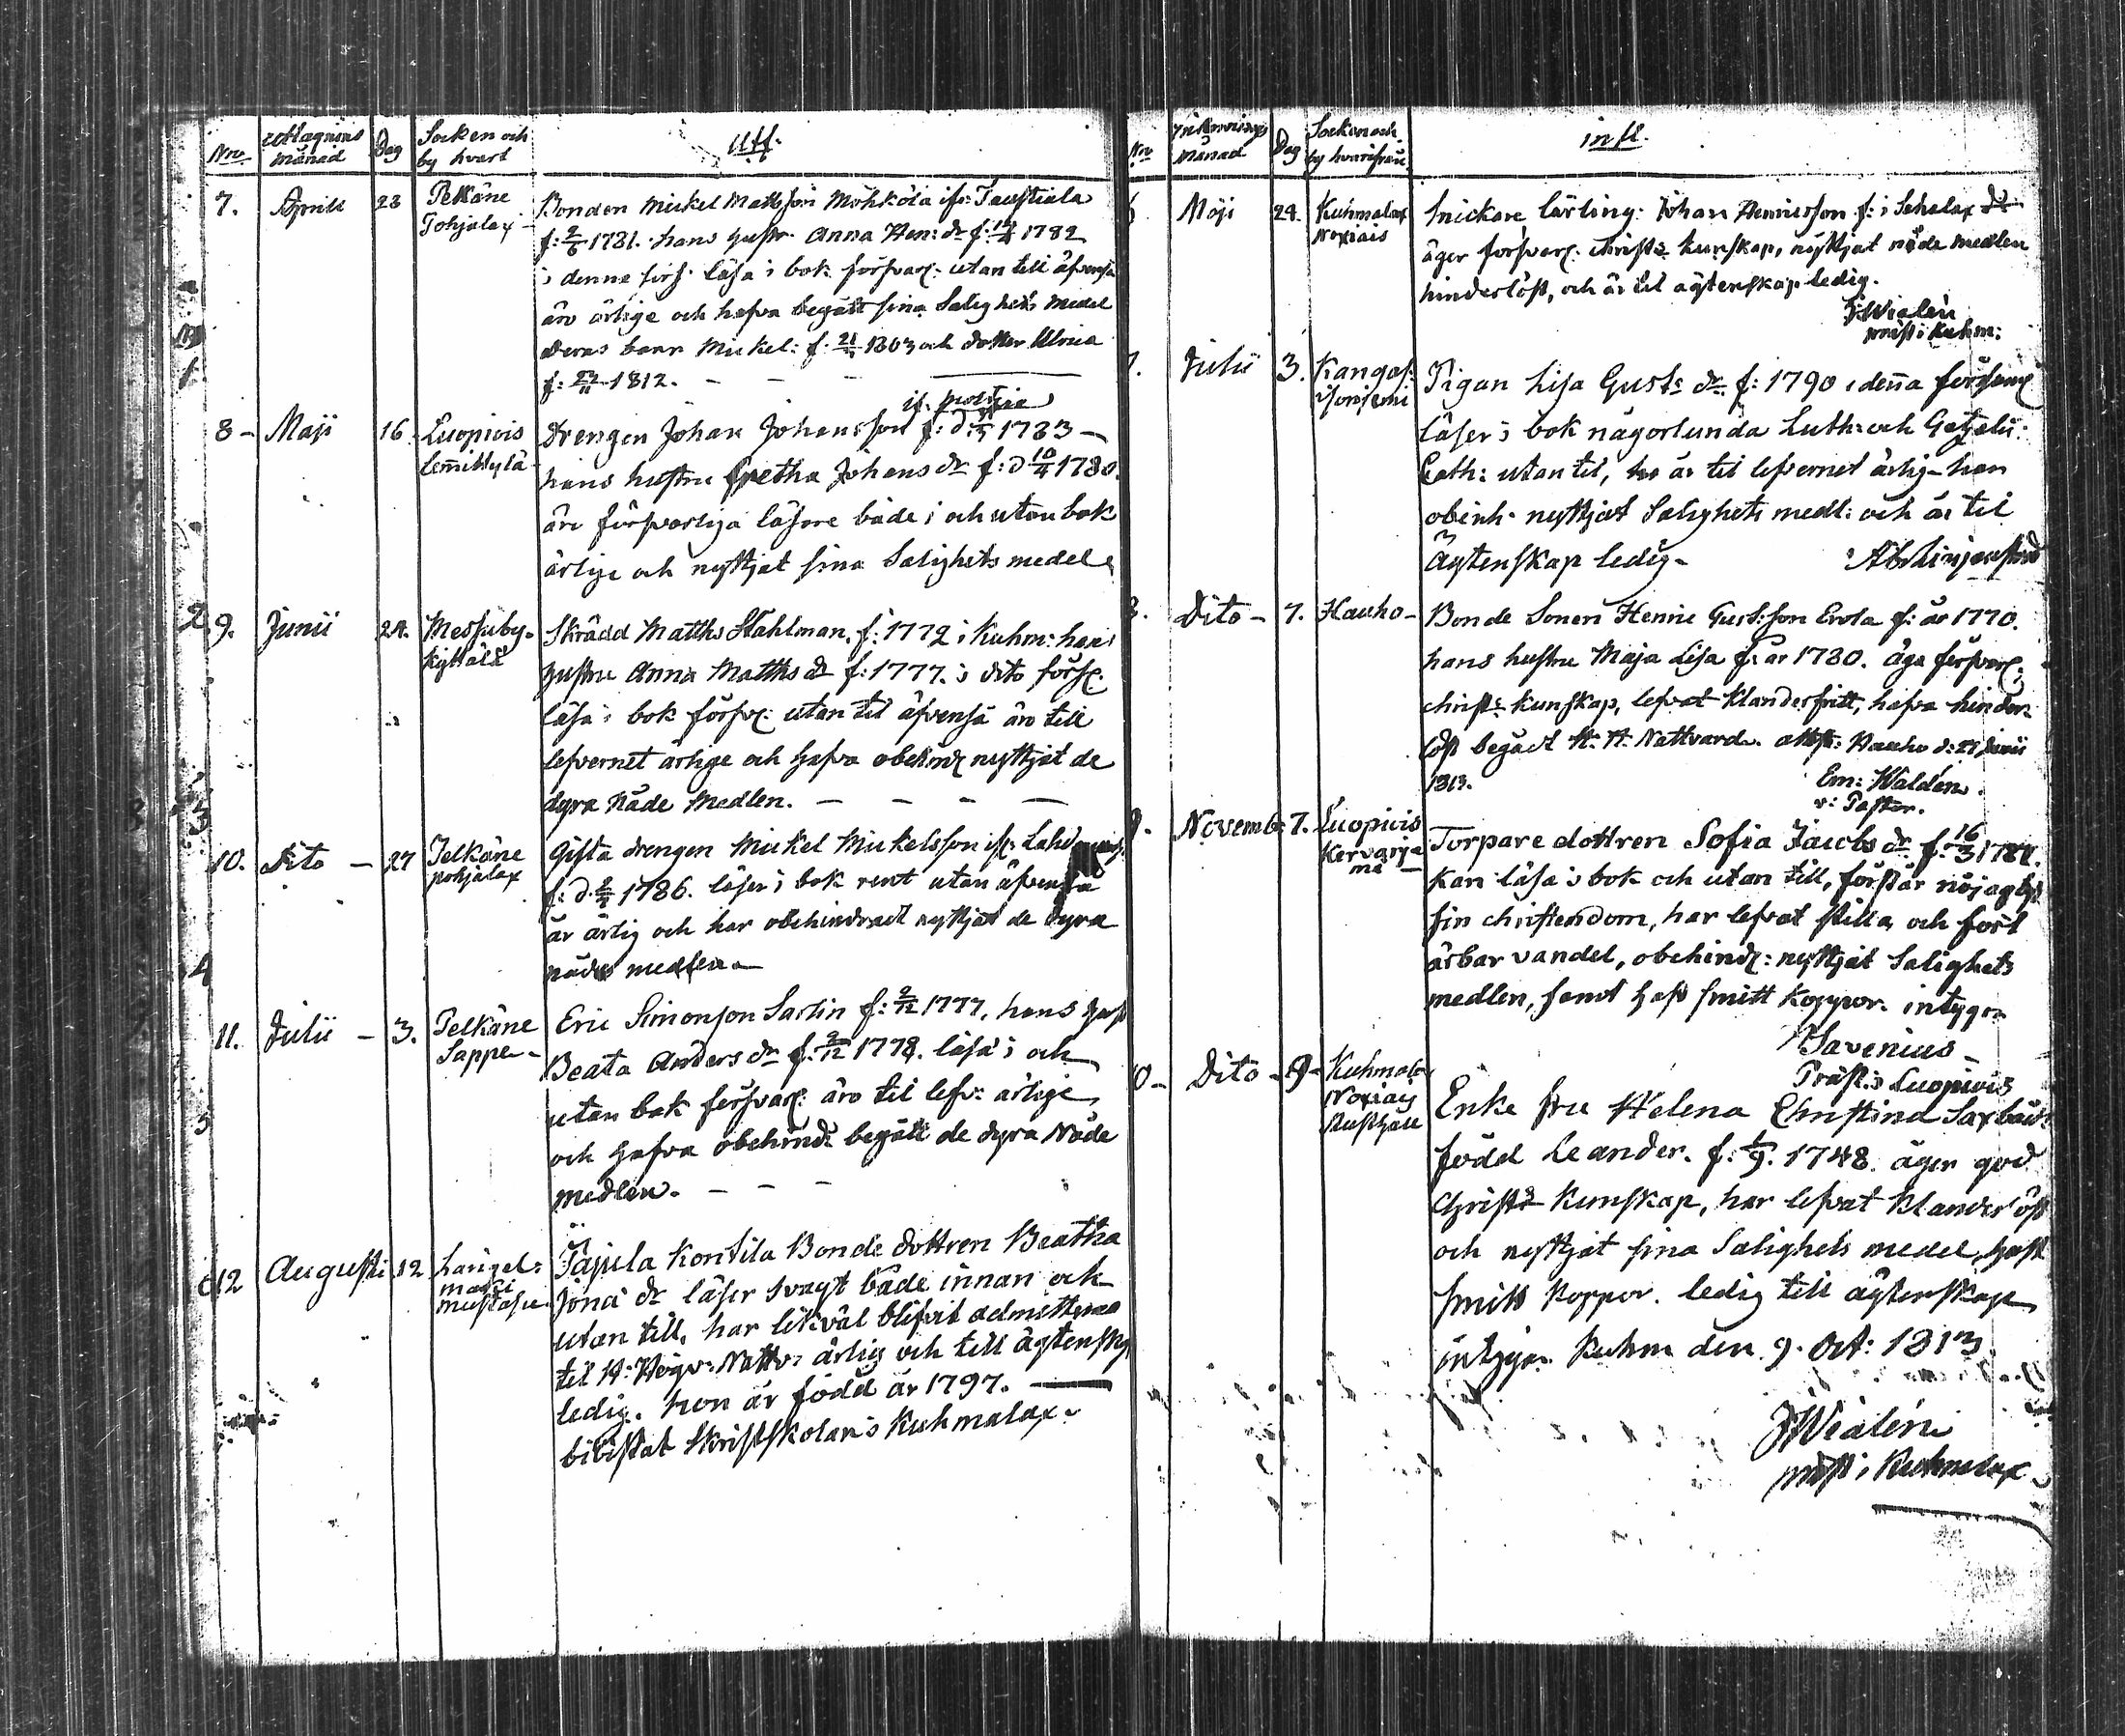 Nro
Månad
Dag
Socken och
by hvart
Utfl.
7.
Aprill
23
Pelkäne
Pohjalax
Bonden Mickel Mattsson Möhkölä ifr: Taustiala
1781. hans hustr. Anna Hen: dr f: 1782
i denne förs. läsa i bok försvarl: utan till äfvenså
äro ärlige och hafva begått sina Salighets medel
deras barn Mickel: f: 1803 och dotter Ulrica
f: 1812. - - -
8 -
Maji
16.
Luopiois
Drengen Johan Johansson f: d: 1783 -
hans hustru Gretha Johans dr f: d 10/4 1780.
äro försvarliga läsare både i och utan bok
ärlige och nyttjat sina Salighets medel
9.
Junii
24.
Messuby.
Skrädd Matths Stahlman. f: 1772 i Kuhm: hans
hustru Anna Matths dr f: 1777. i dito förs.
läsa i bok försv: utan til äfvenså äro till
lefvernet ärlige och hafva obehind nyttjat de
dyra Nåde Medlen. - - - -
10.
Dito -
27
Pelkäne
pohjalax
Gifta drengen Mickel Mickelsson
f: d. 1786. läser i bok rent utan äfvenså
är ärlig och har obehindradt nyttjat de dyra
nåde medlen -
11.
Julii -
3.
Pelkäne
Sappe -
Eric Simonson Sarlin f: 9/12 1777, hans hust
Beata Anders dr f: 9/12 1778. läsa i och
utan bok försvarl: äro til lefv: ärlige
och hafva obehind: begått de dyra Nåde
medlen. - - -
12
Augusti
12
Längel:
mäki
Päjula Kontila Bonde dottren Beatha
Jona dr läser svagt både innan och
utan till, har likväl blifvit admitteras
til H: Högv: Nattv: ärlig och till ägtenskp
ledig. hon är född år 1797. -
bivistat Skriftskolan i Kuhmalax.
Nro
Månad
Dag
Socken och
by hvarifrån
infl.
Maji
24.
Kuhmalax
Noxiais
Snickare lärling: Johan Henricsson f: i Sahalax
äger försvarl: christ: kunskap, nyttjat nåde medlen
hinderlöst, och är til ägtenskap ledig.
J Wialén
präst i Kuhm:
Julii
3.
Kangas:
Pigan Lisa Gust: dr f: 1790 i denna församl
läser i bok någorlunda Luth: och
Cath: utan til, är til lefvernet ärlig - har
obinh. nyttjat Salighets medl: och är til
ägtenskap ledig -
Dito -
7.
Hauho -
Bonde Sonen Henric Gust:son Erola f: år 1770.
hans hustru Maja Lisa f: år 1780. äga försvarl:
christ: kunskap, lefvat klanderfritt, hafva hinder
löst begådt H. H. Nattvard. attest: Hauho d: 27 Junii
1813.
Em: Waldén.
v: Pastor.
Novemb:
7.
Luopiois
Kervanja
Torpare dottren Sofia Jacobs dr f: 16/3
kan läsa i bok och utan till, förstår nöjagtigt
sin christendom, har lefvat stilla och fört
ärbar vandel, obehind: nyttjat Salighets
medlen, samt haft smitt koppor. intygar
Savenius
Präst i Luopiois
Dito -
9 -
Kuhmala
Noxiais
Rusthåll
Enke fru Helena Christina
född Leander. f: 1748. äger god
Christ: kunskap, har lefvat klanderlöst
och nyttjat sina Salighets medel, haft
smitt koppor. ledig till ägtenskap
intygar. Kuhm den 9. Oct: 1813
J Wialén
präst i Kuhmalax